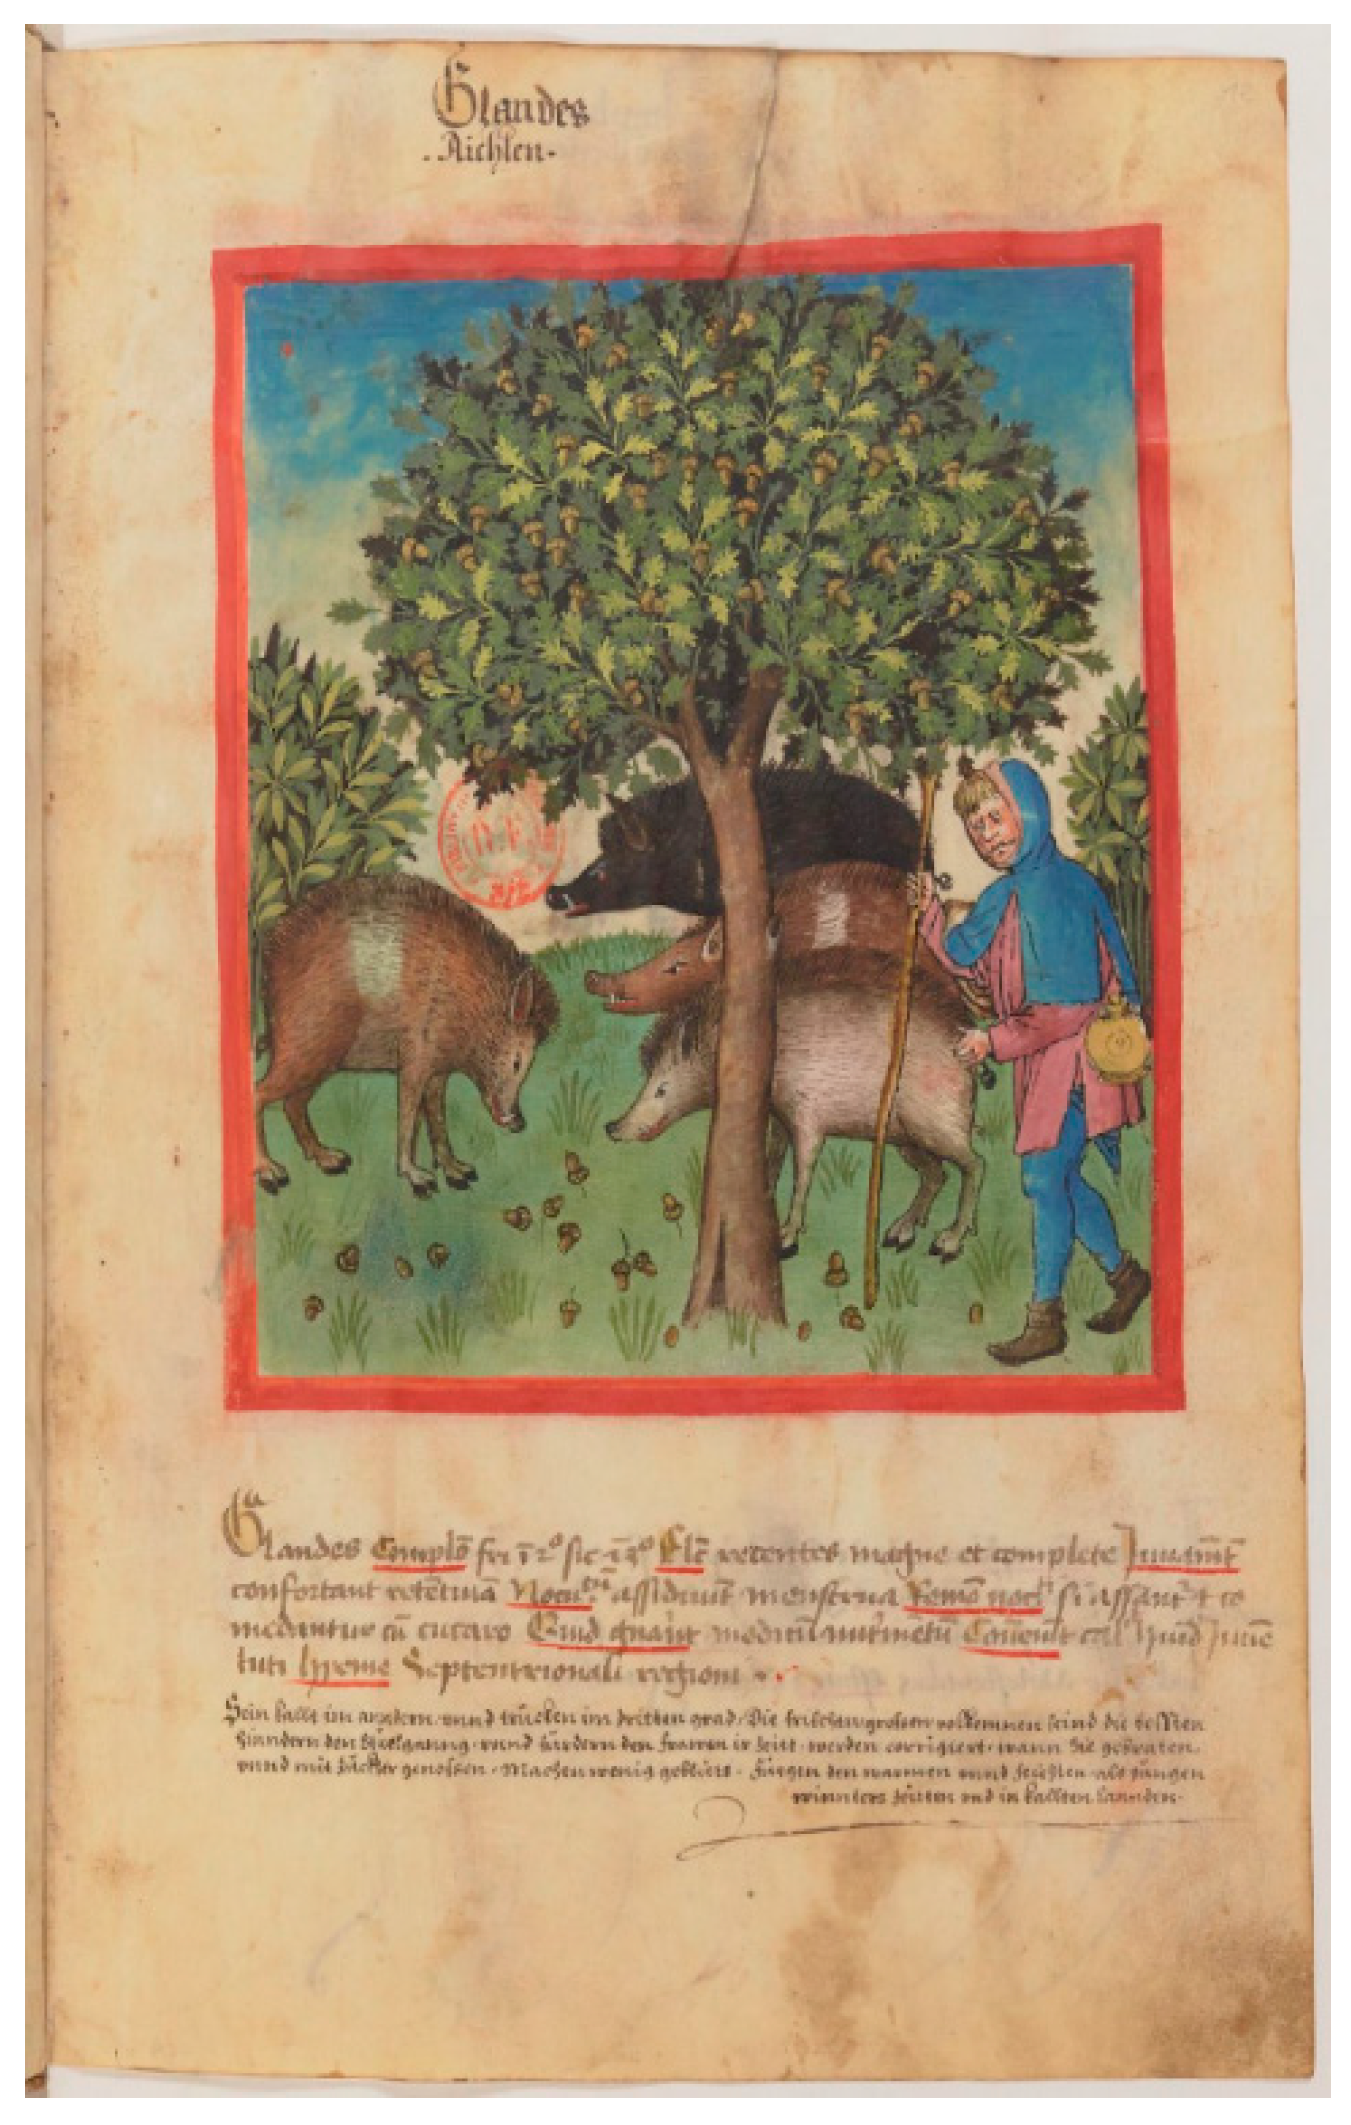 Glandes
.Aichlen.
Glandes Complō fri ī 2º sic ī 3º Elc̄ recentes magne et complete Iuuamt̄
confortant retētiuā Nocu. assiduūt menstrua Remō noct̄i si assant̄ et co
medantur cū cucaro Quid gnāt modicū nutrimētū Cōuenit cal. hūid Iuuē
tuti hyeme Septentrionali regioni
Sein kallt im anndern vnnd trucken im dritten grad. Die frischen grossen volkomnen seind die besten
hinndern den Stuelganng vnnd fürdern den frawen ir zeitt. werden corrigiert. wann Sie gebraten.
vnnd mit zucker genossen. Machen wenig geblüets. Fuegen den warmen vnnd feichten als jungen
winnters zeitten vnd in kallten lannden.